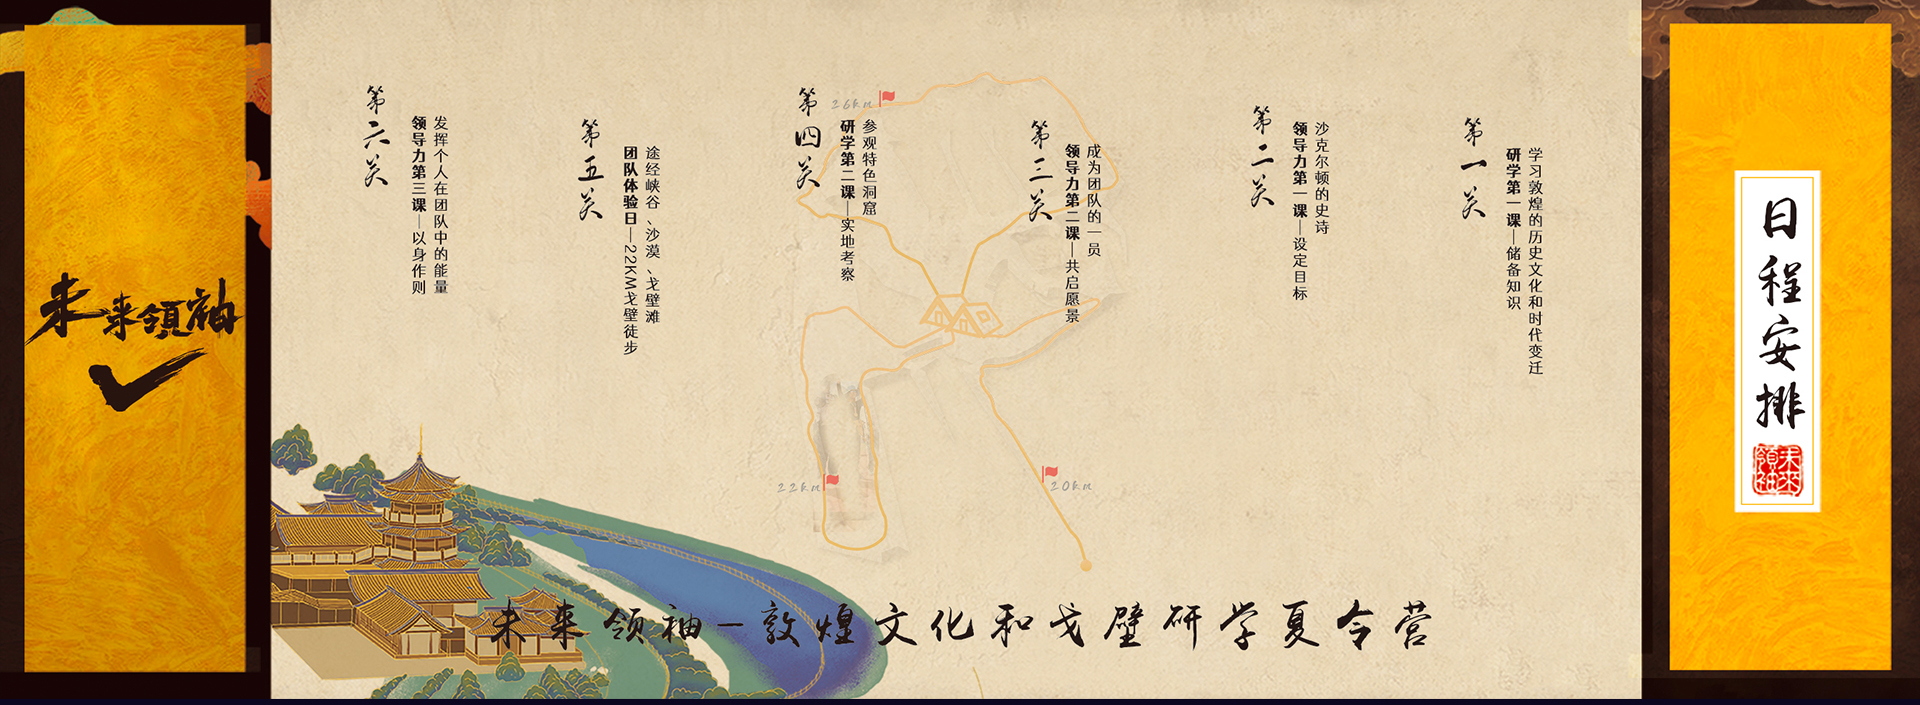 日程安排
未来領袖
第一关
学习敦煌的历史文化和时代变迁
研学第一课—储备知识
第二关
沙克尔顿的史诗
领导力第一课—设定目标
第三关
成为团队的一员
领导力第二课—共启愿景
第四关
参观特色洞窟
研学第二课—实地考察
第五关
途经峡谷、沙漠、戈壁滩
团队体验日—22KM戈壁徒步
第六关
发挥个人在团队中的能量
领导力第三课—以身作则
26km
22km
20km
未来领袖—敦煌文化和戈壁研学夏令营
未来領袖